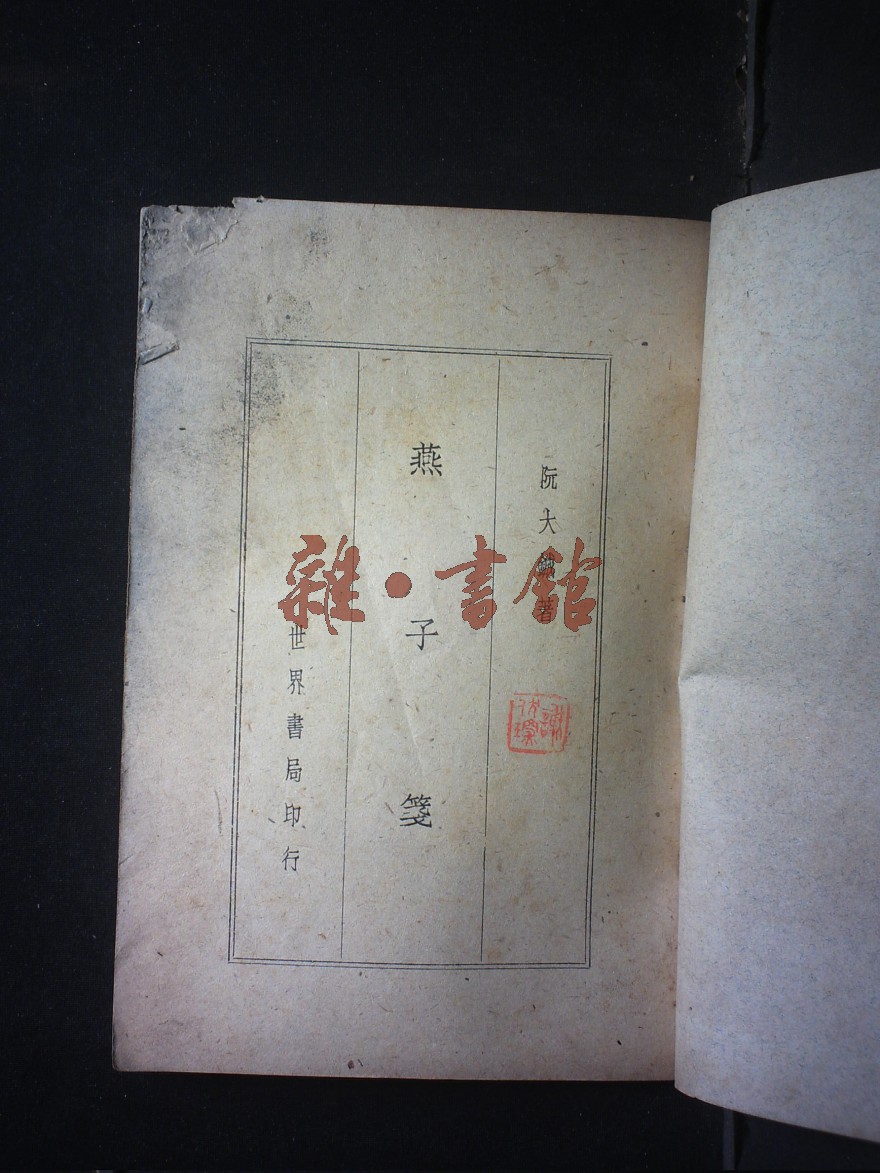 阮大鋮著
燕子箋
世界書局印行
雜·書館